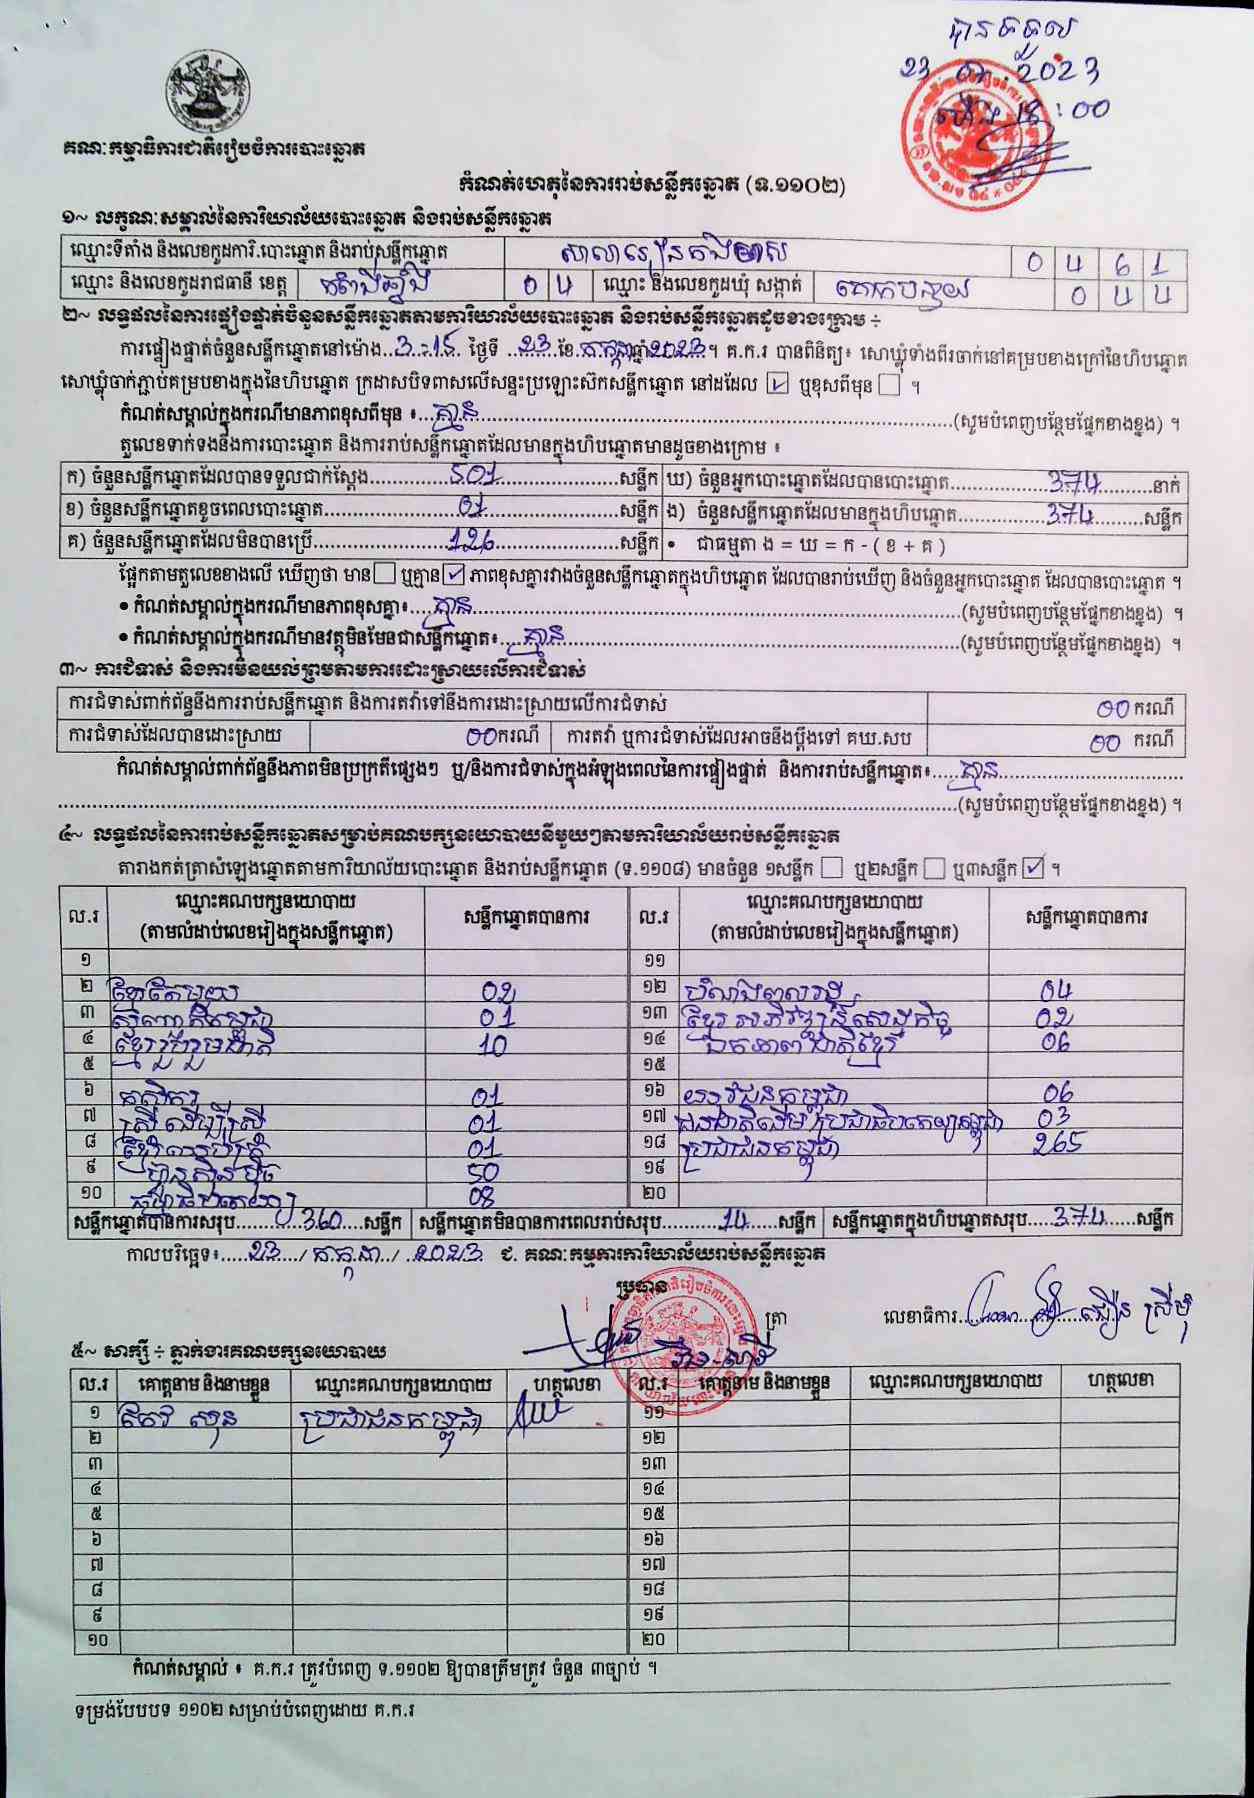 បានទទួល
23 កក្កដា 2023
ម៉ោង 18:00
គណៈកម្មាធិការជាតិរៀបចំការបោះឆ្នោត
កំណត់ហេតុនៃការរាប់សន្លឹកឆ្នោត (ទ.១១០២)
១~ លក្ខណៈសម្គាល់នៃការិយាល័យបោះឆ្នោត និងរាប់សន្លឹកឆ្នោត
ឈ្មោះទីតាំង និងលេខកូដការិ.បោះឆ្នោត និងរាប់សន្លឹកឆ្នោត សាលារៀន 0 4 6 1
ឈ្មោះ និងលេខកូដរាជធានី ខេត្ត កំពង់ឆ្នាំង 0 4 ឈ្មោះ និងលេខកូដឃុំ សង្កាត់ គោកបន្ទាយ 0 4 4
២~ លទ្ធផលនៃការផ្ទៀងផ្ទាត់ចំនួនសន្លឹកឆ្នោតតាមការិយាល័យបោះឆ្នោត និងរាប់សន្លឹកឆ្នោតដូចខាងក្រោម ÷
ការផ្ទៀងផ្ទាត់ចំនួនសន្លឹកឆ្នោតនៅម៉ោង..3-15.. ថ្ងៃទី ..23..ខែ.កក្កដា.ឆ្នាំ2023។ គ.ក.រ បានពិនិត្យ៖ សោឃ្លុំទាំងពីរចាក់នៅគម្របខាងក្រៅនៃហិបឆ្នោត
សោឃ្លុំចាក់ភ្ជាប់គម្របខាងក្នុងនៃហិបឆ្នោត ក្រដាសបិទពាសលើសន្ទះប្រឡោះស៊កសន្លឹកឆ្នោត នៅដដែល ☑ ឬខុសពីមុន ☐ ។
កំណត់សម្គាល់ក្នុងករណីមានភាពខុសពីមុន ៖...គ្មាន...(សូមបំពេញបន្ថែមផ្នែកខាងខ្នង) ។
តួលេខទាក់ទងនឹងការបោះឆ្នោត និងការរាប់សន្លឹកឆ្នោតដែលមានក្នុងហិបឆ្នោតមានដូចខាងក្រោម ៖
ក) ចំនួនសន្លឹកឆ្នោតដែលបានទទួលជាក់ស្តែង...501...សន្លឹក ឃ) ចំនួនអ្នកបោះឆ្នោតដែលបានបោះឆ្នោត...374...នាក់
ខ) ចំនួនសន្លឹកឆ្នោតខូចពេលបោះឆ្នោត...01...សន្លឹក ង) ចំនួនសន្លឹកឆ្នោតដែលមានក្នុងហិបឆ្នោត...374...សន្លឹក
គ) ចំនួនសន្លឹកឆ្នោតដែលមិនបានប្រើ...126...សន្លឹក • ជាធម្មតា ង = ឃ = ក - ( ខ + គ )
ផ្អែកតាមតួលេខខាងលើ ឃើញថា មាន☐ ឬគ្មាន☑ ភាពខុសគ្នារវាងចំនួនសន្លឹកឆ្នោតក្នុងហិបឆ្នោត ដែលបានរាប់ឃើញ និងចំនួនអ្នកបោះឆ្នោត ដែលបានបោះឆ្នោត ។
• កំណត់សម្គាល់ក្នុងករណីមានភាពខុសគ្នា៖...គ្មាន...(សូមបំពេញបន្ថែមផ្នែកខាងខ្នង) ។
• កំណត់សម្គាល់ក្នុងករណីមានវត្ថុមិនមែនជាសន្លឹកឆ្នោត៖...គ្មាន...(សូមបំពេញបន្ថែមផ្នែកខាងខ្នង) ។
៣~ ការជំទាស់ និងការមិនយល់ព្រមតាមការដោះស្រាយលើការជំទាស់
ការជំទាស់ពាក់ព័ន្ធនឹងការរាប់សន្លឹកឆ្នោត និងការតវ៉ាទៅនឹងការដោះស្រាយលើការជំទាស់ 00 ករណី
ការជំទាស់ដែលបានដោះស្រាយ 00ករណី ការតវ៉ា ឬការជំទាស់ដែលអាចនឹងប្តឹងទៅ គឃ.សប 00 ករណី
កំណត់សម្គាល់ពាក់ព័ន្ធនឹងភាពមិនប្រក្រតីផ្សេងៗ ឬ/និងការជំទាស់ក្នុងអំឡុងពេលនៃការផ្ទៀងផ្ទាត់ និងការរាប់សន្លឹកឆ្នោត៖...គ្មាន...
...(សូមបំពេញបន្ថែមផ្នែកខាងខ្នង) ។
៤~ លទ្ធផលនៃការរាប់សន្លឹកឆ្នោតសម្រាប់គណបក្សនយោបាយនីមួយៗតាមការិយាល័យរាប់សន្លឹកឆ្នោត
តារាងកត់ត្រាសំឡេងឆ្នោតតាមការិយាល័យបោះឆ្នោត និងរាប់សន្លឹកឆ្នោត (ទ.១១០៨) មានចំនួន ១សន្លឹក ☐ ឬ២សន្លឹក ☐ ឬ៣សន្លឹក ☑ ។
ល.រ ឈ្មោះគណបក្សនយោបាយ (តាមលំដាប់លេខរៀងក្នុងសន្លឹកឆ្នោត) សន្លឹកឆ្នោតបានការ ល.រ ឈ្មោះគណបក្សនយោបាយ (តាមលំដាប់លេខរៀងក្នុងសន្លឹកឆ្នោត) សន្លឹកឆ្នោតបានការ
១ ១១
២ ខ្មែរតែមួយ 02 ១២ សំណាងពលរដ្ឋ 04
៣ 01 ១៣ ខ្មែរអភិវឌ្ឍន៍សេដ្ឋកិច្ច 02
៤ ខ្មែររួបរួមជាតិ 10 ១៤ ឯកភាពជាតិខ្មែរ 06
៥ ១៥
៦ កសិករ 01 ១៦ យុវជនកម្ពុជា 06
៧ ស្ត្រីដើម្បីស្ត្រី 01 ១៧ ជនជាតិដើមប្រជាធិបតេយ្យកម្ពុជា 03
៨ ខ្មែរឈប់ក្រ 01 ១៨ ប្រជាជនកម្ពុជា 265
៩ ហ្វ៊ុនស៊ិនប៉ិច 50 ១៩
១០ ធម្មាធិបតេយ្យ 08 ២០
សន្លឹកឆ្នោតបានការសរុប...360...សន្លឹក សន្លឹកឆ្នោតមិនបានការពេលរាប់សរុប...14...សន្លឹក សន្លឹកឆ្នោតក្នុងហិបឆ្នោតសរុប...374...សន្លឹក
កាលបរិច្ឆេទ៖...23.../ កក្កដា../ ..2023 ជ. គណៈកម្មការការិយាល័យរាប់សន្លឹកឆ្នោត
ប្រធាន
ត្រា លេខាធិការ... ជឿន ស្រីមុំ
៥~ សាក្សី ÷ ភ្នាក់ងារគណបក្សនយោបាយ
ល.រ គោត្តនាម និងនាមខ្លួន ឈ្មោះគណបក្សនយោបាយ ហត្ថលេខា ល.រ គោត្តនាម និងនាមខ្លួន ឈ្មោះគណបក្សនយោបាយ ហត្ថលេខា
១ កែវ សុន ប្រជាជនកម្ពុជា ១១
២ ១២
៣ ១៣
៤ ១៤
៥ ១៥
៦ ១៦
៧ ១៧
៨ ១៨
៩ ១៩
១០ ២០
កំណត់សម្គាល់ ៖ គ.ក.រ ត្រូវបំពេញ ទ.១១០២ ឱ្យបានត្រឹមត្រូវ ចំនួន ៣ច្បាប់ ។
ទម្រង់បែបបទ ១១០២ សម្រាប់បំពេញដោយ គ.ក.រ